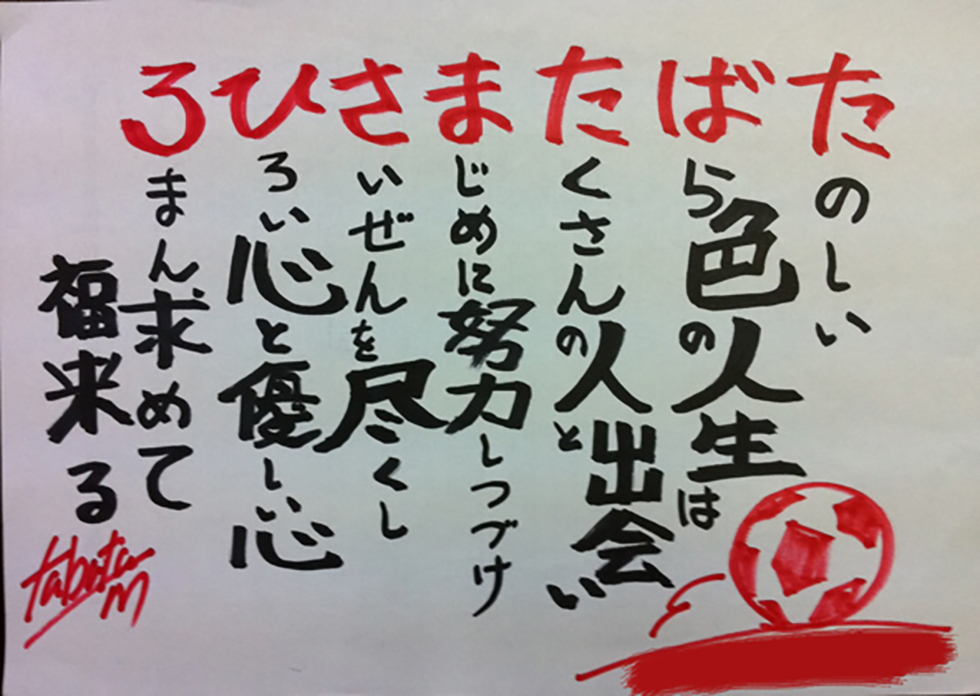 たのしい
ばら色の人生は
たくさんの人と出会い
まじめに努力しつづけ
さいぜんを尽くし
ひろい心と優しい心
ろまん求めて
福来る
tabata
m